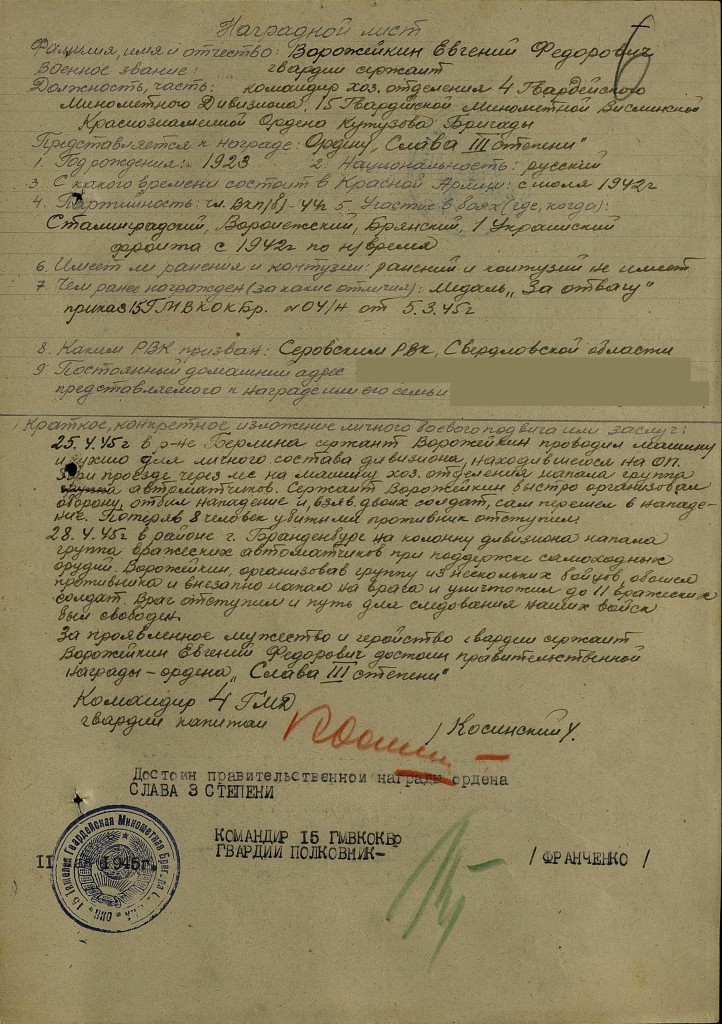 Наградной лист
Фамилия, имя и отчество: Ворожейкин Евгений Федорович
Военное звание: гвардии сержант
Должность, часть: командир хоз. отделения 4 Гвардейского
Минометного Дивизиона, 15 Гвардейской Минометной Висминской
Краснознаменной Ордена Кутузова Бригады
Представляется к награде: Ордену „Слава III степени"
1. Год рождения: 1923 2. Национальность: русский
3. С какого времени состоит в Красной Армии: с июля 1942г
4. Партийность: чл. ВКП/б/-44г 5. Участие в боях (где, когда):
Сталинградский, Воронежский, Брянский, 1 Украинский
фронта с 1942г по н/время
6. Имеет ли ранения и контузии: ранений и контузий не имеет
7. Чем ранее награжден (за какие отличия): Медаль „За отвагу"
приказ 15 ГМВКОКБр. №04/н от 5.3.45г
8. Каким РВК призван: Серовским РВК, Свердловской области
9. Постоянный домашний адрес
представляемого к награде или его семьи
Краткое, конкретное изложение личного боевого подвига или заслуг:
25.4.45г в р-не Берлина сержант Ворожейкин проводил машину
с ужином для личного состава дивизиона, находившегося на ОП.
При проезде через лес на машину хоз. отделения напала группа
автоматчиков. Сержант Ворожейкин быстро организовал
оборону, отбил нападение и, взяв двоих солдат, сам перешел в нападе-
ние. Потеряв 8 человек убитыми противник отступил.
28.4.45г в районе г. Бранденбург на колонну дивизиона напала
группа вражеских автоматчиков при поддержке самоходных
орудий. Ворожейкин, организовав группу из нескольких бойцов, обошел
противника и внезапно напал на врага и уничтожил до 11 вражеских
солдат. Враг отступил и путь для следования наших войск
был свободен.
За проявленное мужество и геройство гвардии сержант
Ворожейкин Евгений Федорович достоин правительственной
награды – ордена „Слава III степени"
Командир 4 ГМД
гвардии капитан / Косинский /.
Достоин правительственной награды ордена
СЛАВА 3 СТЕПЕНИ
КОМАНДИР 15 ГМВКОКБр
ГВАРДИИ ПОЛКОВНИК- / ФРАНЧЕНКО /
1945г.